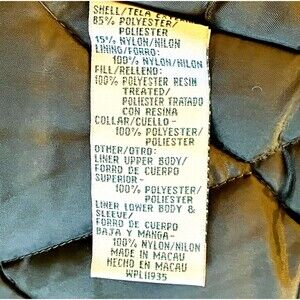 SHELL/TELA
85% POLYESTER/
POLIESTER
15% NYLON/NILON
LINING/FORRO:
100% NYLON/NILON
FILL/RELLENO:
100% POLYESTER RESIN
TREATED/
POLIESTER TRATADO
CON RESINA
COLLAR/CUELLO-
100% POLYESTER/
POLIESTER
OTHER/OTRO:
LINER UPPER BODY/
FORRO DE CUERPO
SUPERIOR-
100% POLYESTER/
POLIESTER
LINER LOWER BODY &
SLEEVE/
FORRO DE CUERPO
BAJA Y MANGA-
100% NYLON/NILON
MADE IN MACAU
HECHO EN MACAU
WPL11935